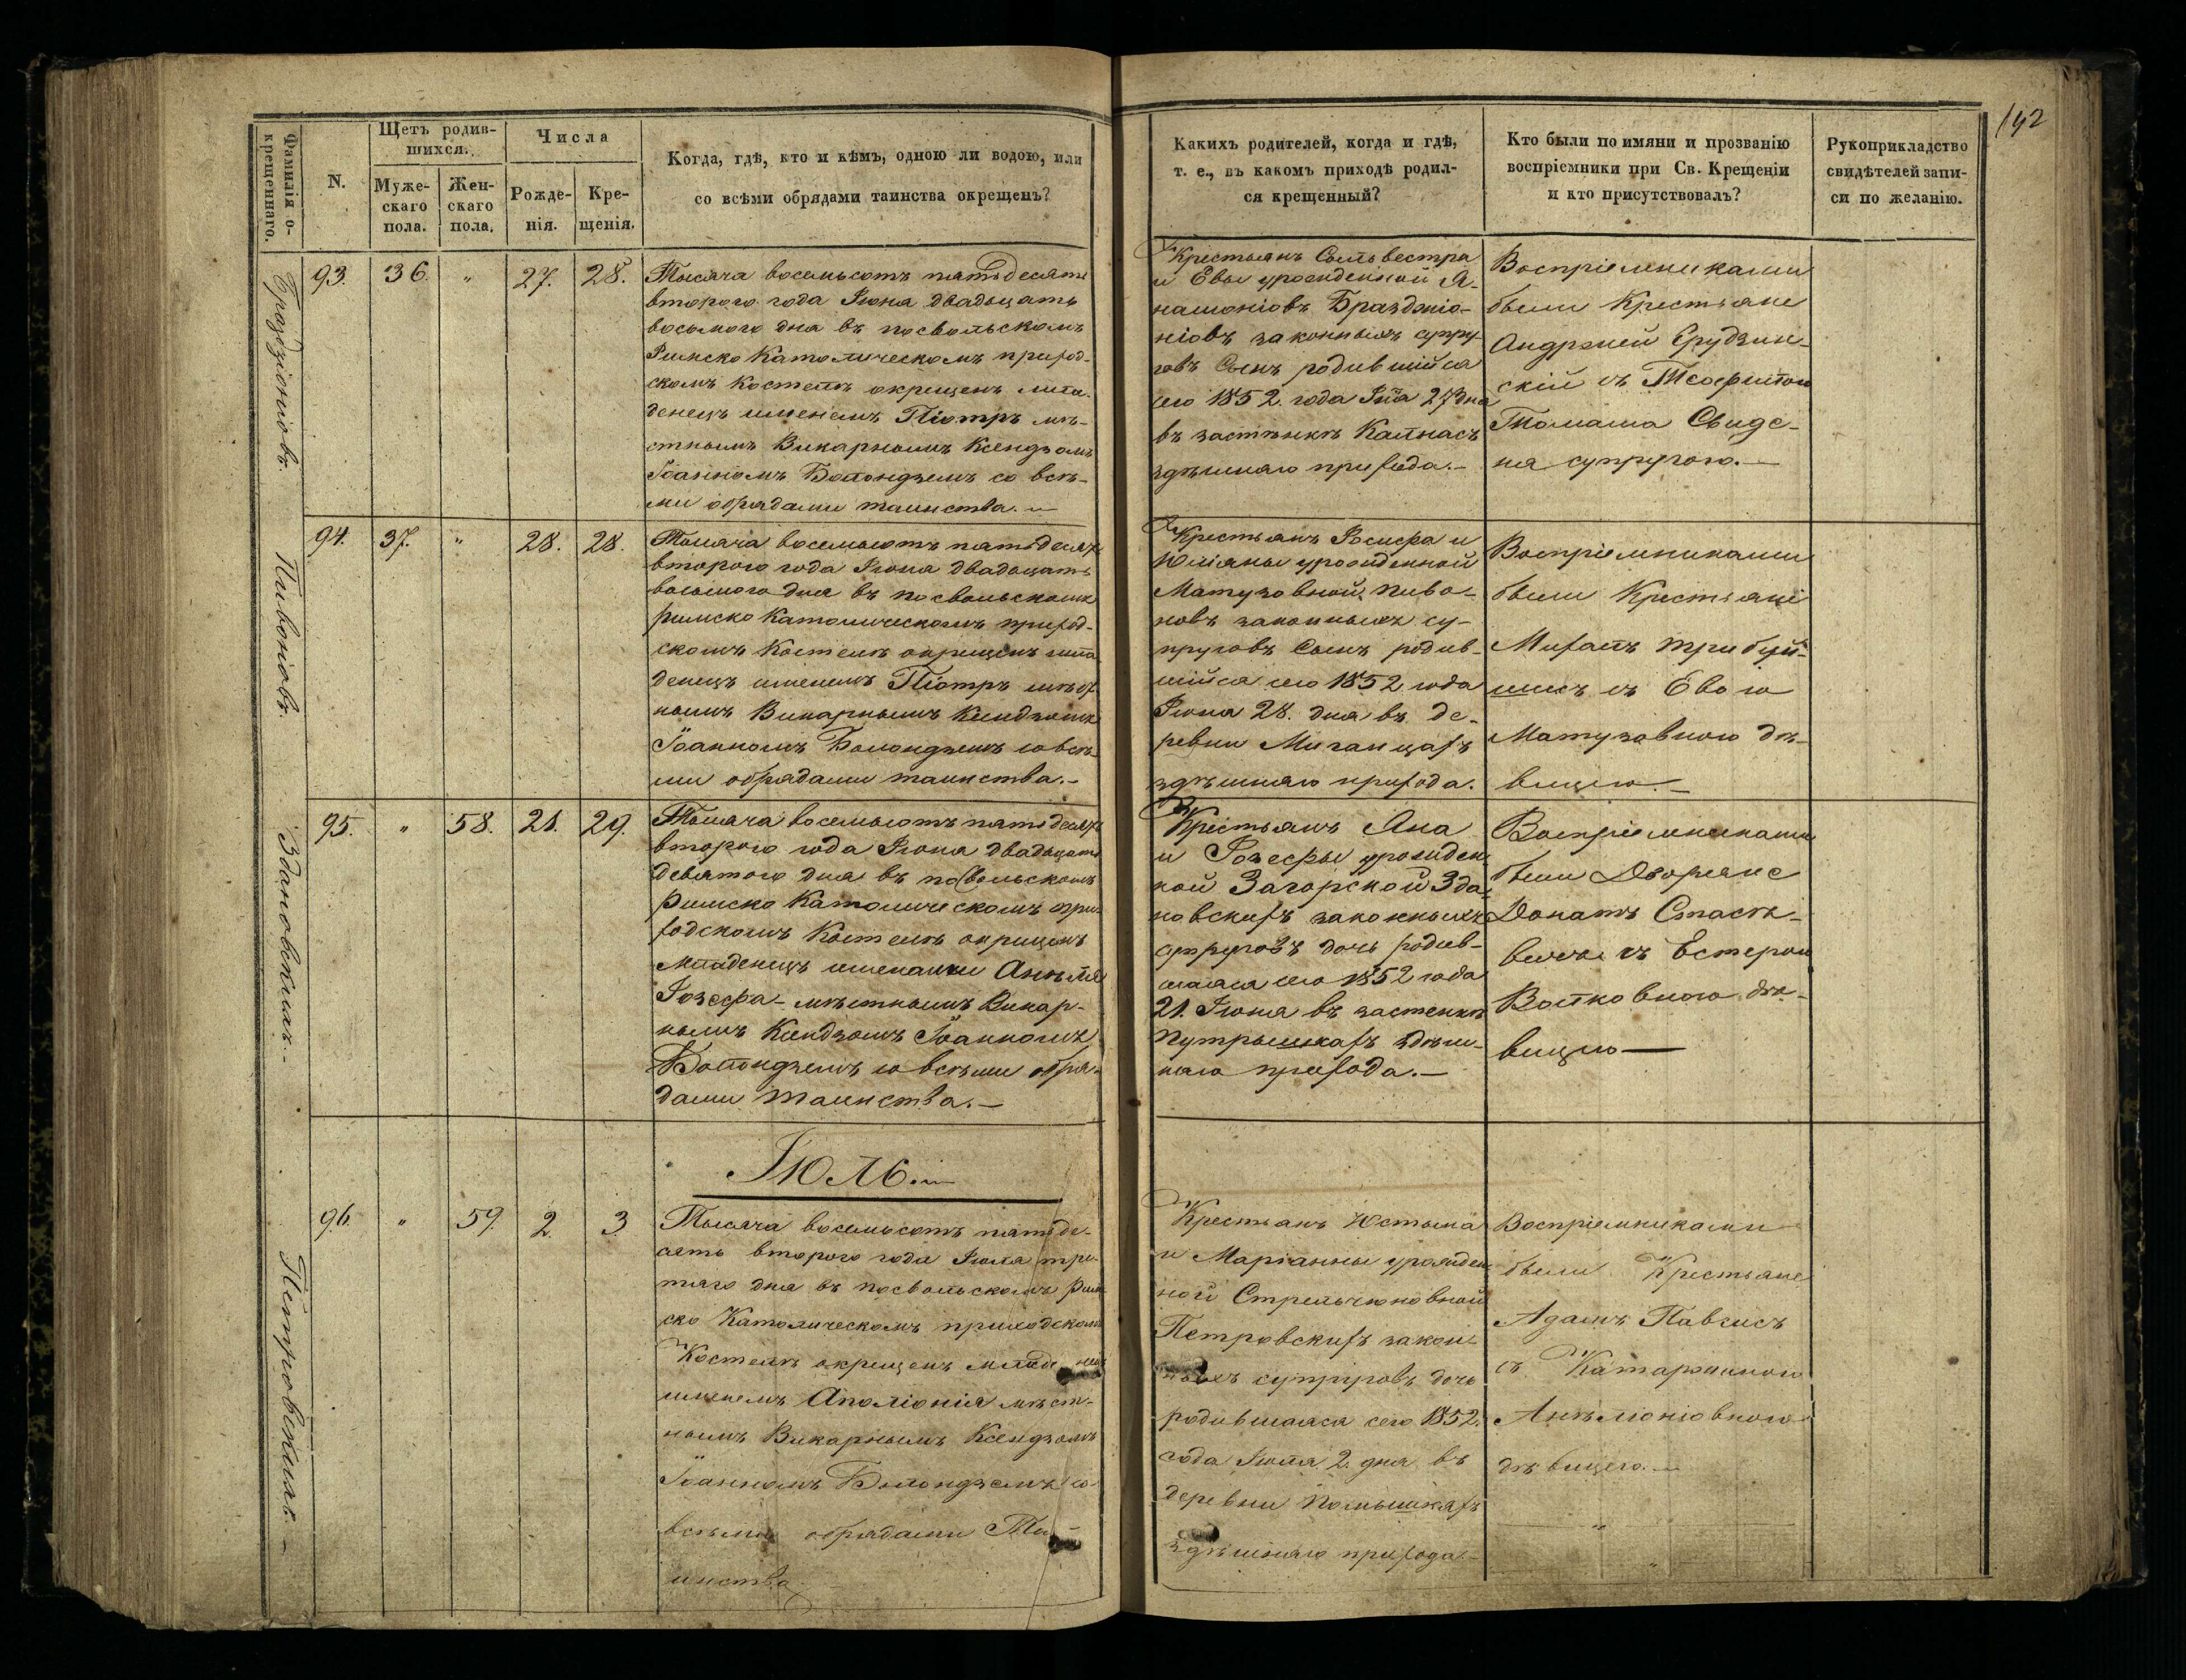 142
Фамилія о-
крещеннаго.
N.
Щетъ родив-
шихся.
Муже-
скаго
пола.
Жен-
скаго
пола.
Числа
Рожде-
нія.
Кре-
щенія.
Когда, гдѣ, кто и кѣмъ, одною ли водою, или
со всѣми обрядами таинства окрещенъ?
Каких родителей, когда и гдѣ,
т. е., въ какомъ приходѣ родил-
ся крещенный?
Кто были по имяни и прозванію
воспріемники при Св. Крещеніи
и кто присутствовалъ?
Рукоприкладство
свидѣтелей запи-
си по желанію.
93.
36.
"
27.
28.
Тысяча восемьсотъ пятьдесятъ
второго года Іюна двадцать
восьмого дна въ посвольскомъ
Римско Католическомъ приход-
скомъ Костелѣ окрещенъ мла-
денецъ именемъ Піотръ мѣ-
стнымъ Викарнымъ Ксендзомъ
Іоанномъ со всѣ-
ми обрядами таинства.
Крестьянъ Сыльвестра
и Евы урожденной Я-
ніовъ законныхъ супру-
говъ Сынъ родившійся
сего 1852 года 27 дна
въ застѣнкѣ
здѣшняго прихода.-
Воспріемниками
были Крестьяне
Андржей
скій съ
Томаша
на супругою.-
94.
Пивоніовъ
37.
"
28.
28.
Тысяча восемьсотъ пятьдесятъ
второго года Іюна двадцать
восьмого дна въ посвольскомъ
римско Католическомъ приход-
скомъ Костелѣ окрещенъ мла
денецъ именемъ Піотръ мѣст
нымъ Викарнымъ Ксендзомъ
Іоанномъ со всѣ-
ми обрядами таинства.-
Крестьянъ Іосифа и
Юліяны урожденной
Матузовной Пиво-
новъ законныхъ су-
пруговъ Сынъ родив-
шійся сего 1852 года
Іюна 28. дна въ де-
ревни
здѣшняго прихода.
Воспріемниками
были Крестьяне
съ Евою
Матузовною дѣ-
вицею.-
95.
Здановскихъ.-
"
58.
21.
29.
Тысяча восемьсотъ пятьдесятъ
второго года Іюна двадцать
девятого дна въ посвольскомъ
Римско Католическомъ при-
ходскомъ Костелѣ окрещенъ
Младенецъ именами
Іозефа - мѣстнымъ Викар-
нымъ Ксендзомъ Іоанномъ
со всѣми обря-
дами таинства.-
Крестьянъ Яна
и Іозефы урожден-
ной Загорской Зда-
новскихъ законныхъ
супруговъ дочь родив-
шаяся сего 1852 года
21. Іюна въ застенкѣ
Путрышкахъ здѣш-
няго прихода.-
Воспріемниками
были Дворяне
Донатъ
съ Естерою
дѣ-
вицею-
Іюль.
96.
Петровскихъ.-
"
59.
2.
3.
Тысяча восемьсотъ пятьде-
сятъ второго года Іюля тре-
тяго дна въ посвольскомъ Рим
ско Католическомъ приходскомъ
Костелѣ окрещенъ
именемъ Аполіонія мѣст-
нымъ Викарнымъ Ксендзомъ
Іоанномъ со
всѣми обрядами Та-
инства
Крестьянъ Юстына
и Маріанны урожден
ной Стрельчюновной
Петровскихъ закон
ныхъ супруговъ дочь
родившаяся сего 1852.
года Іюля 2. дня въ
деревни Помышкахъ
здѣшняго прихода-
Воспріемниками
были Крестьяне
Адамъ
съ Катаржиною
дѣвицею.-
"
"